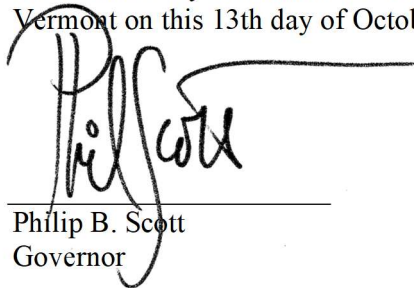 Vermont on this 13th day of Octob
Phil Scott
Philip B. Scott
Governor